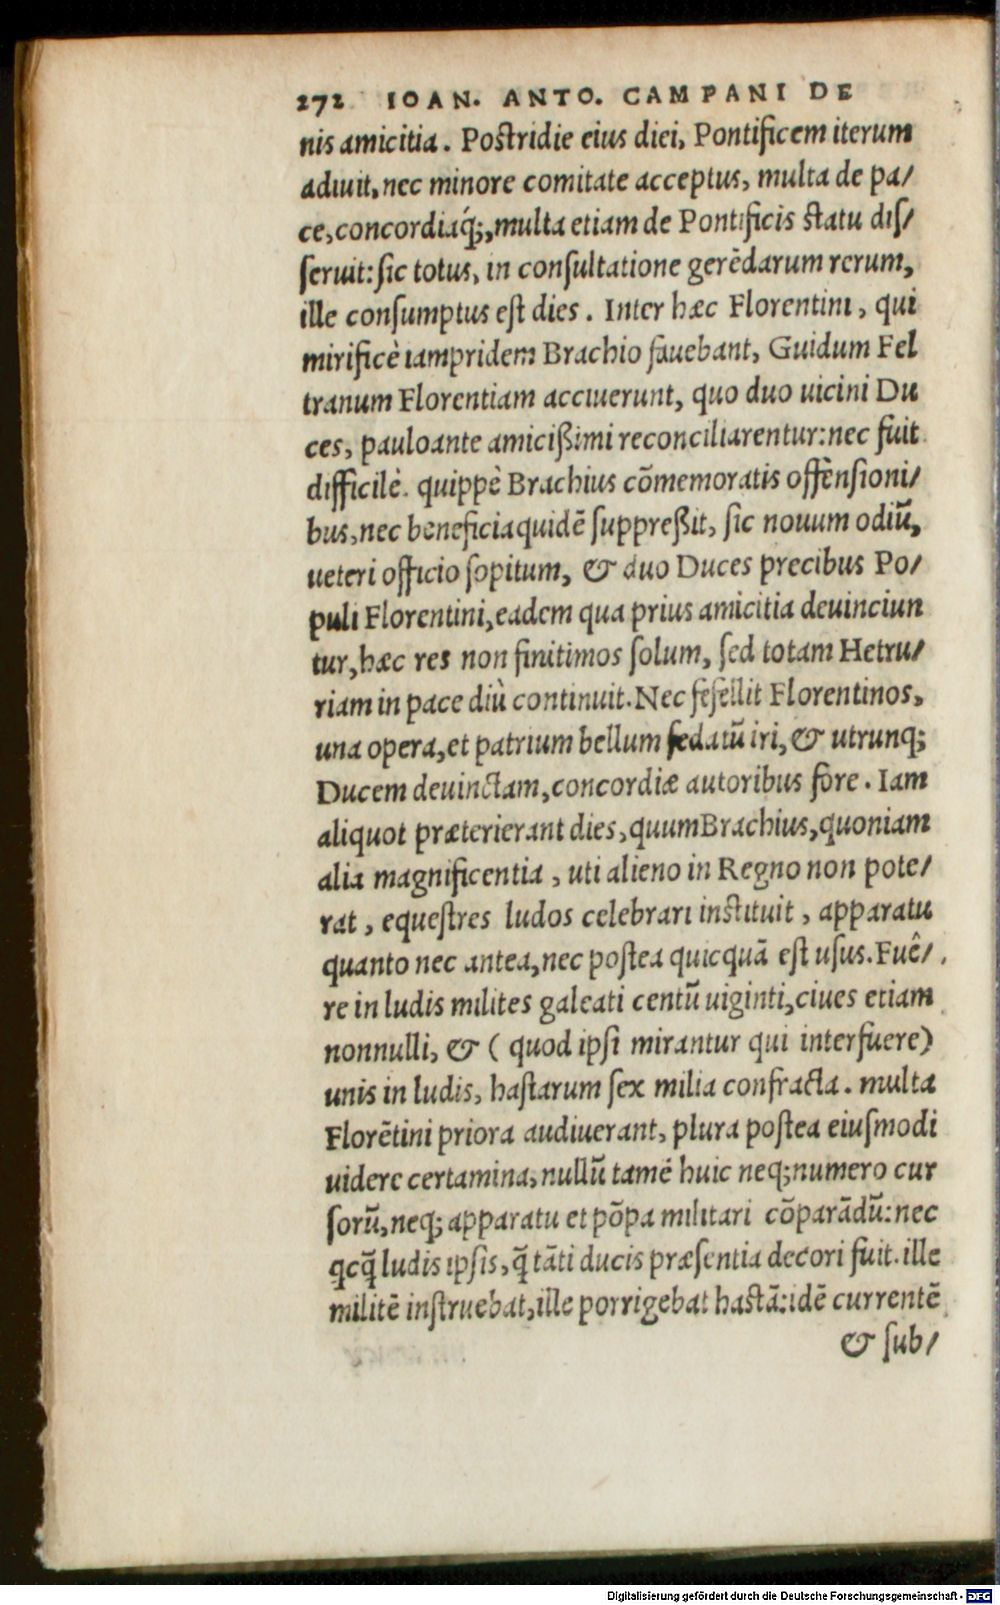 272 IOAN. ANTO. CAMPANI DE
nis amicitia. Postridie eius diei, Pontificem iterum
adiuit, nec minore comitate acceptus, multa de pa/
ce, concordiaq́;, multa etiam de Pontificis statu dis/
seruit: sic totus, in consultatione gerēdarum rerum,
ille consumptus est dies. Inter hæc Florentini, qui
mirificè iampridem Brachio fauebant, Guidum Fel
tranum Florentiam acciuerunt, quo duo uicini Du
ces, pauloante amicißimi reconciliarentur: nec fuit
difficilè. quippè Brachius cōmemoratis offensioni/
bus, nec beneficia quidē suppreßit, sic nouum odiū,
ueteri officio sopitum, & duo Duces precibus Po/
puli Florentini, eadem qua prius amicitia deuinciun
tur, hæc res non finitimos solum, sed totam Hetru/
riam in pace diù continuit. Nec fefellit Florentinos,
una opera, et patrium bellum sedatū iri, & utrunq;
Ducem deuinctam, concordiæ autoribus fore. Iam
aliquot præterierant dies, quum Brachius, quoniam
alia magnificentia, uti alieno in Regno non pote/
rat, equestres ludos celebrari instituit, apparatu
quanto nec antea, nec postea quicquā est usus. Fuê/
re in ludis milites galeati centū uiginti, ciues etiam
nonnulli, & (quod ipsi mirantur qui interfuere)
unis in ludis, hastarum sex milia confracta. multa
Florētini priora audiuerant, plura postea eiusmodi
uidere certamina, nullū tamē huic neq; numero cur
sorū, neq; apparatu et pōpa militari cōparādū: nec
qcq̄ ludis ipsis, q̄ tāti ducis præsentia decori fuit. ille
militē instruebat, ille porrigebat hastā: idē currentē
& sub/
Digitalisierung gefördert durch die Deutsche Forschungsgemeinschaft - DFG